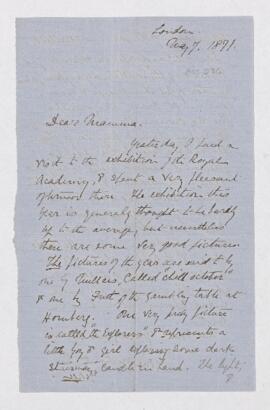 London
May 7. 1891.
Dear Mamma.
Yesterday I paid a
visit to the exhibition of the Royal
Academy, & spent a very pleasant
afternoon there. The exhibition this
year is generally thought to be hardly
up to the average, but nevertheless
there are some very good pictures.
The pictures of the year are said to be
one by Fildes, called "the doctor"
& one by of the gambling table at
Homberg. One very pretty picture
is called the "Explorers" & represents a
little boy & girl exploring some dark
stairway, candle in hand. The light,